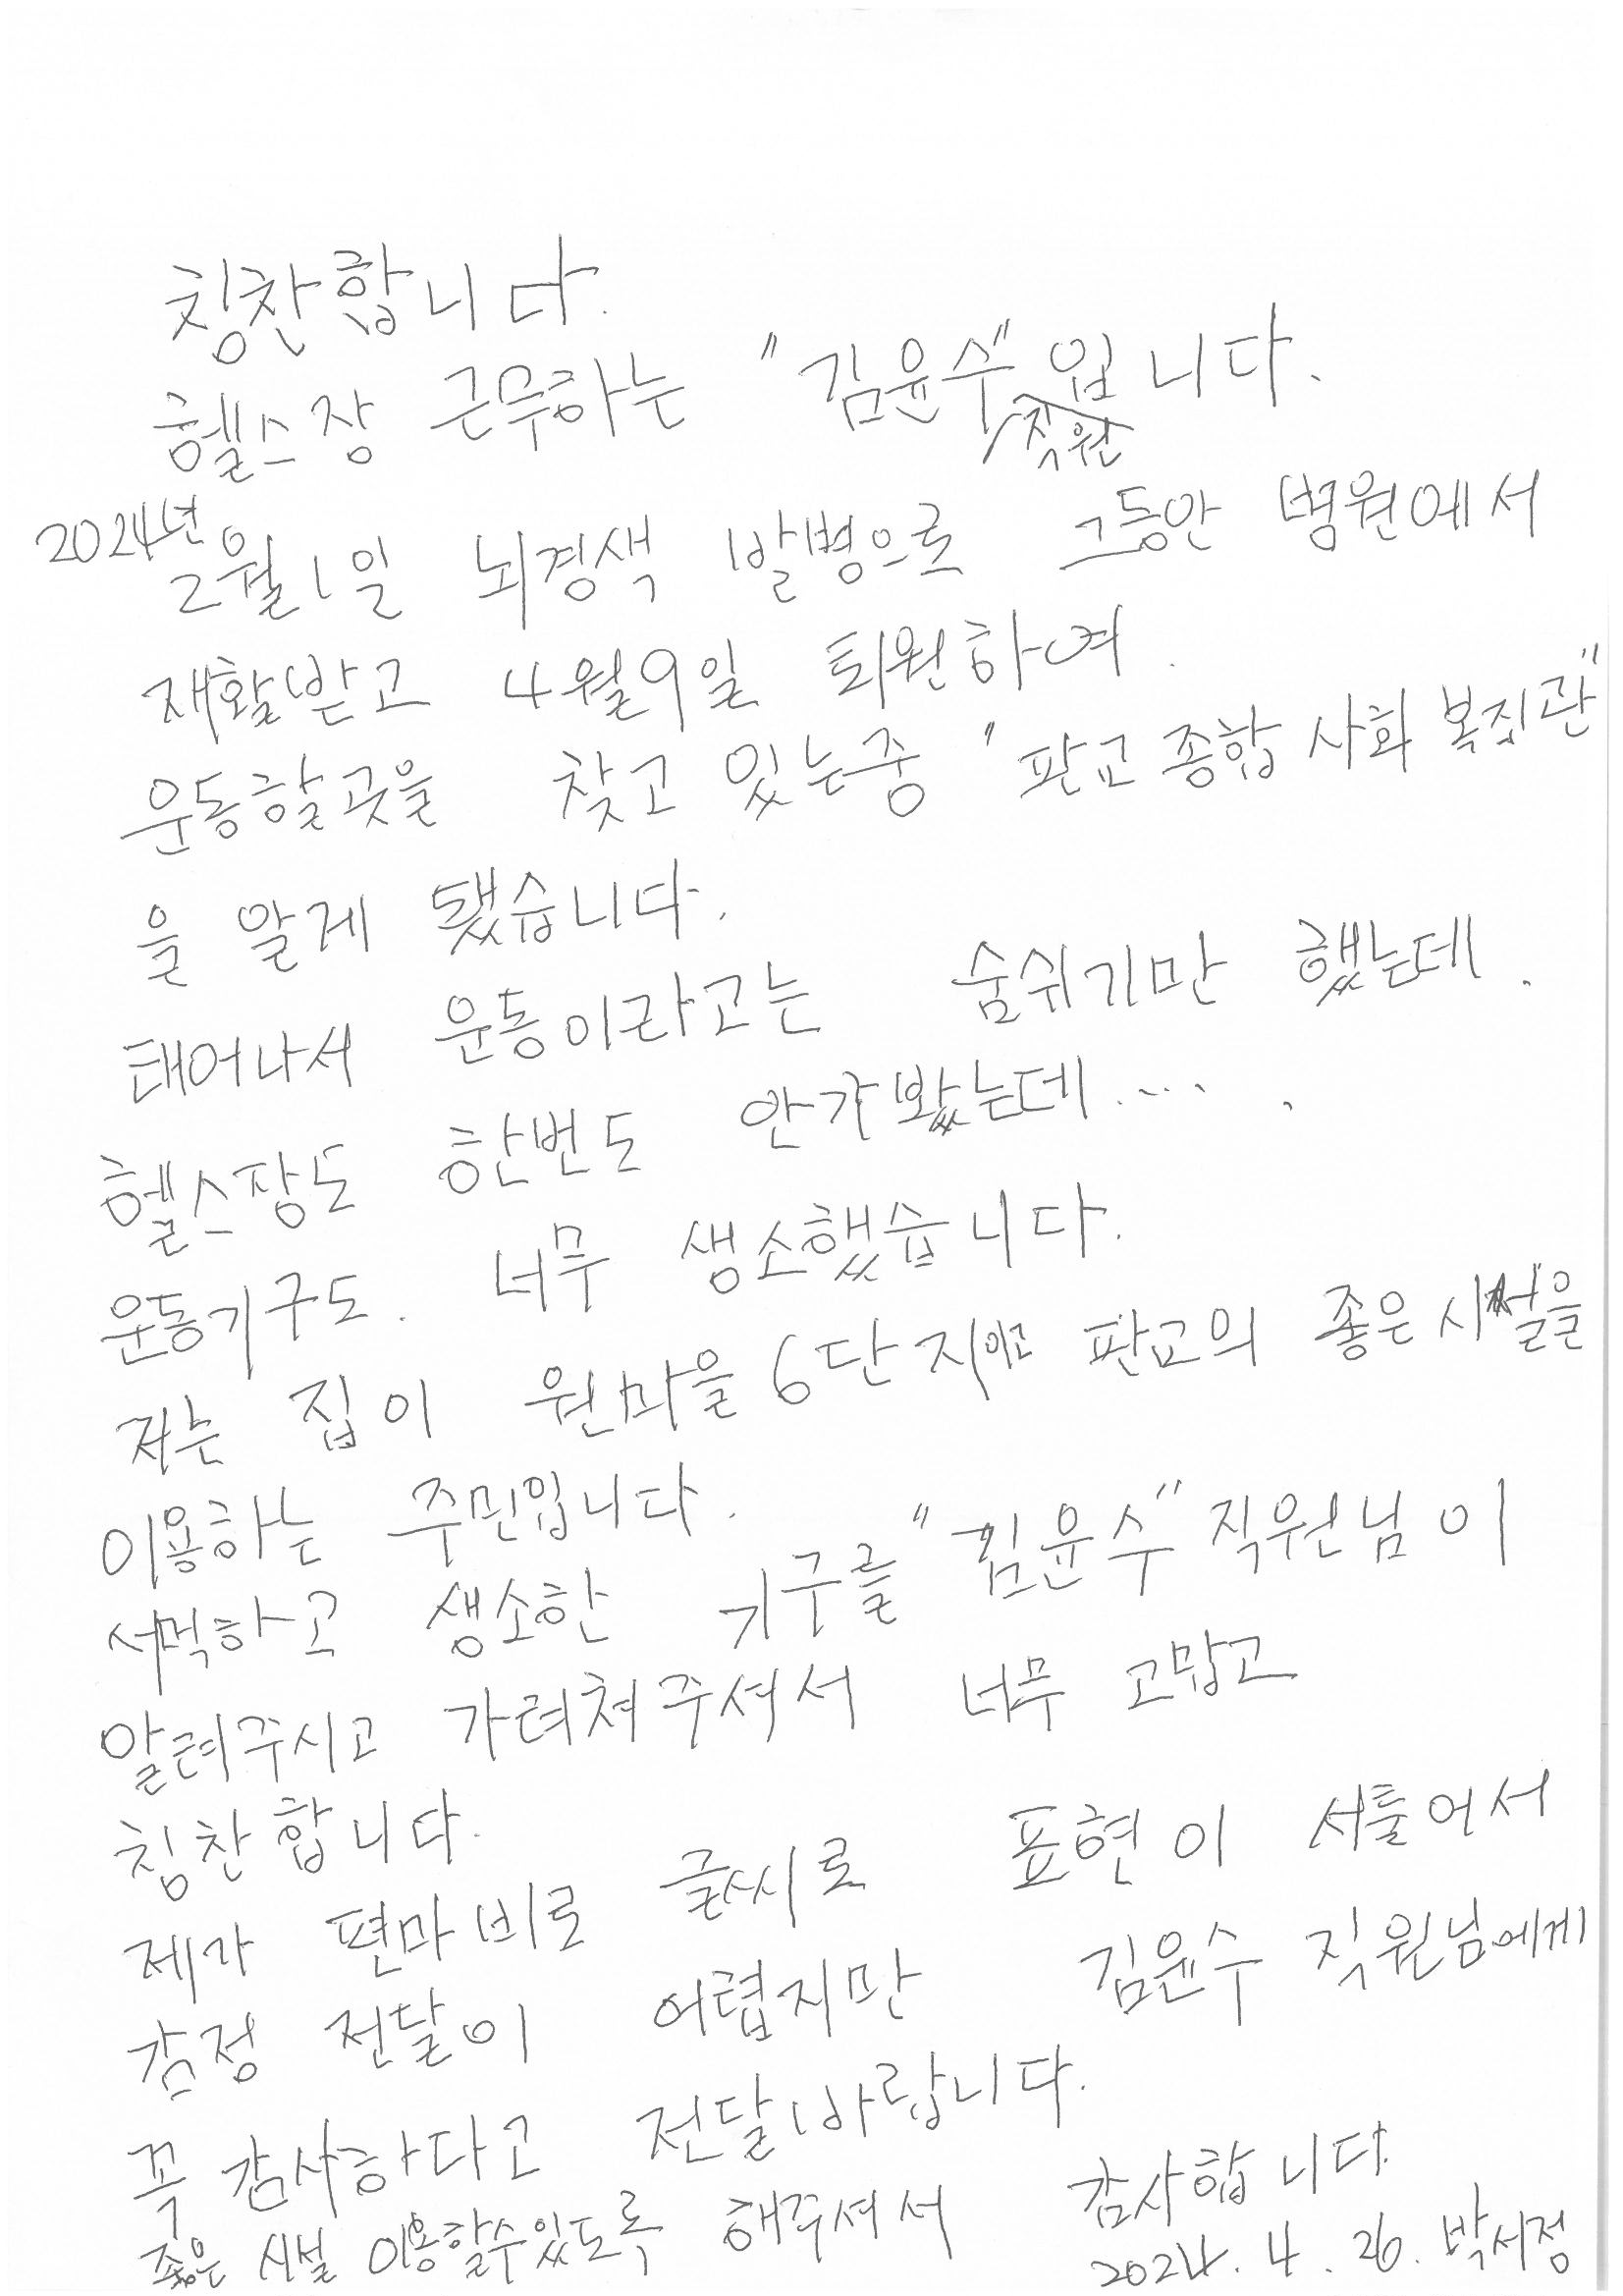 칭찬합니다.
헬스장 근무하는 "김윤수" 직원 입니다.
2024년 2월 1일 뇌경색 발병으로 그동안 병원에서
재활받고 4월 9일 퇴원하여.
운동할곳을 찾고 있는중 "판교 종합 사회 복지관"
을 알게 됐습니다.
태어나서 운동이라고는 숨쉬기만 했는데.
헬스장도 한번도 안가봤는데.....
운동기구도. 너무 생소했습니다.
저는 집이 원마을 6단지이고 판교의 좋은 시설을
이용하는 주민입니다.
서먹하고 생소한 기구를 "김윤수" 직원님이
알려주시고 가려쳐주셔서 너무 고맙고
칭찬합니다.
제가 편마비로 글씨로 표현이 서툴어서
감정 전달이 어렵지만 김윤수 직원님에게
꼭 감사하다고 전달바랍니다.
좋은 시설 이용할수있도록 해주셔서 감사합니다.
2024. 4. 26. 박서정